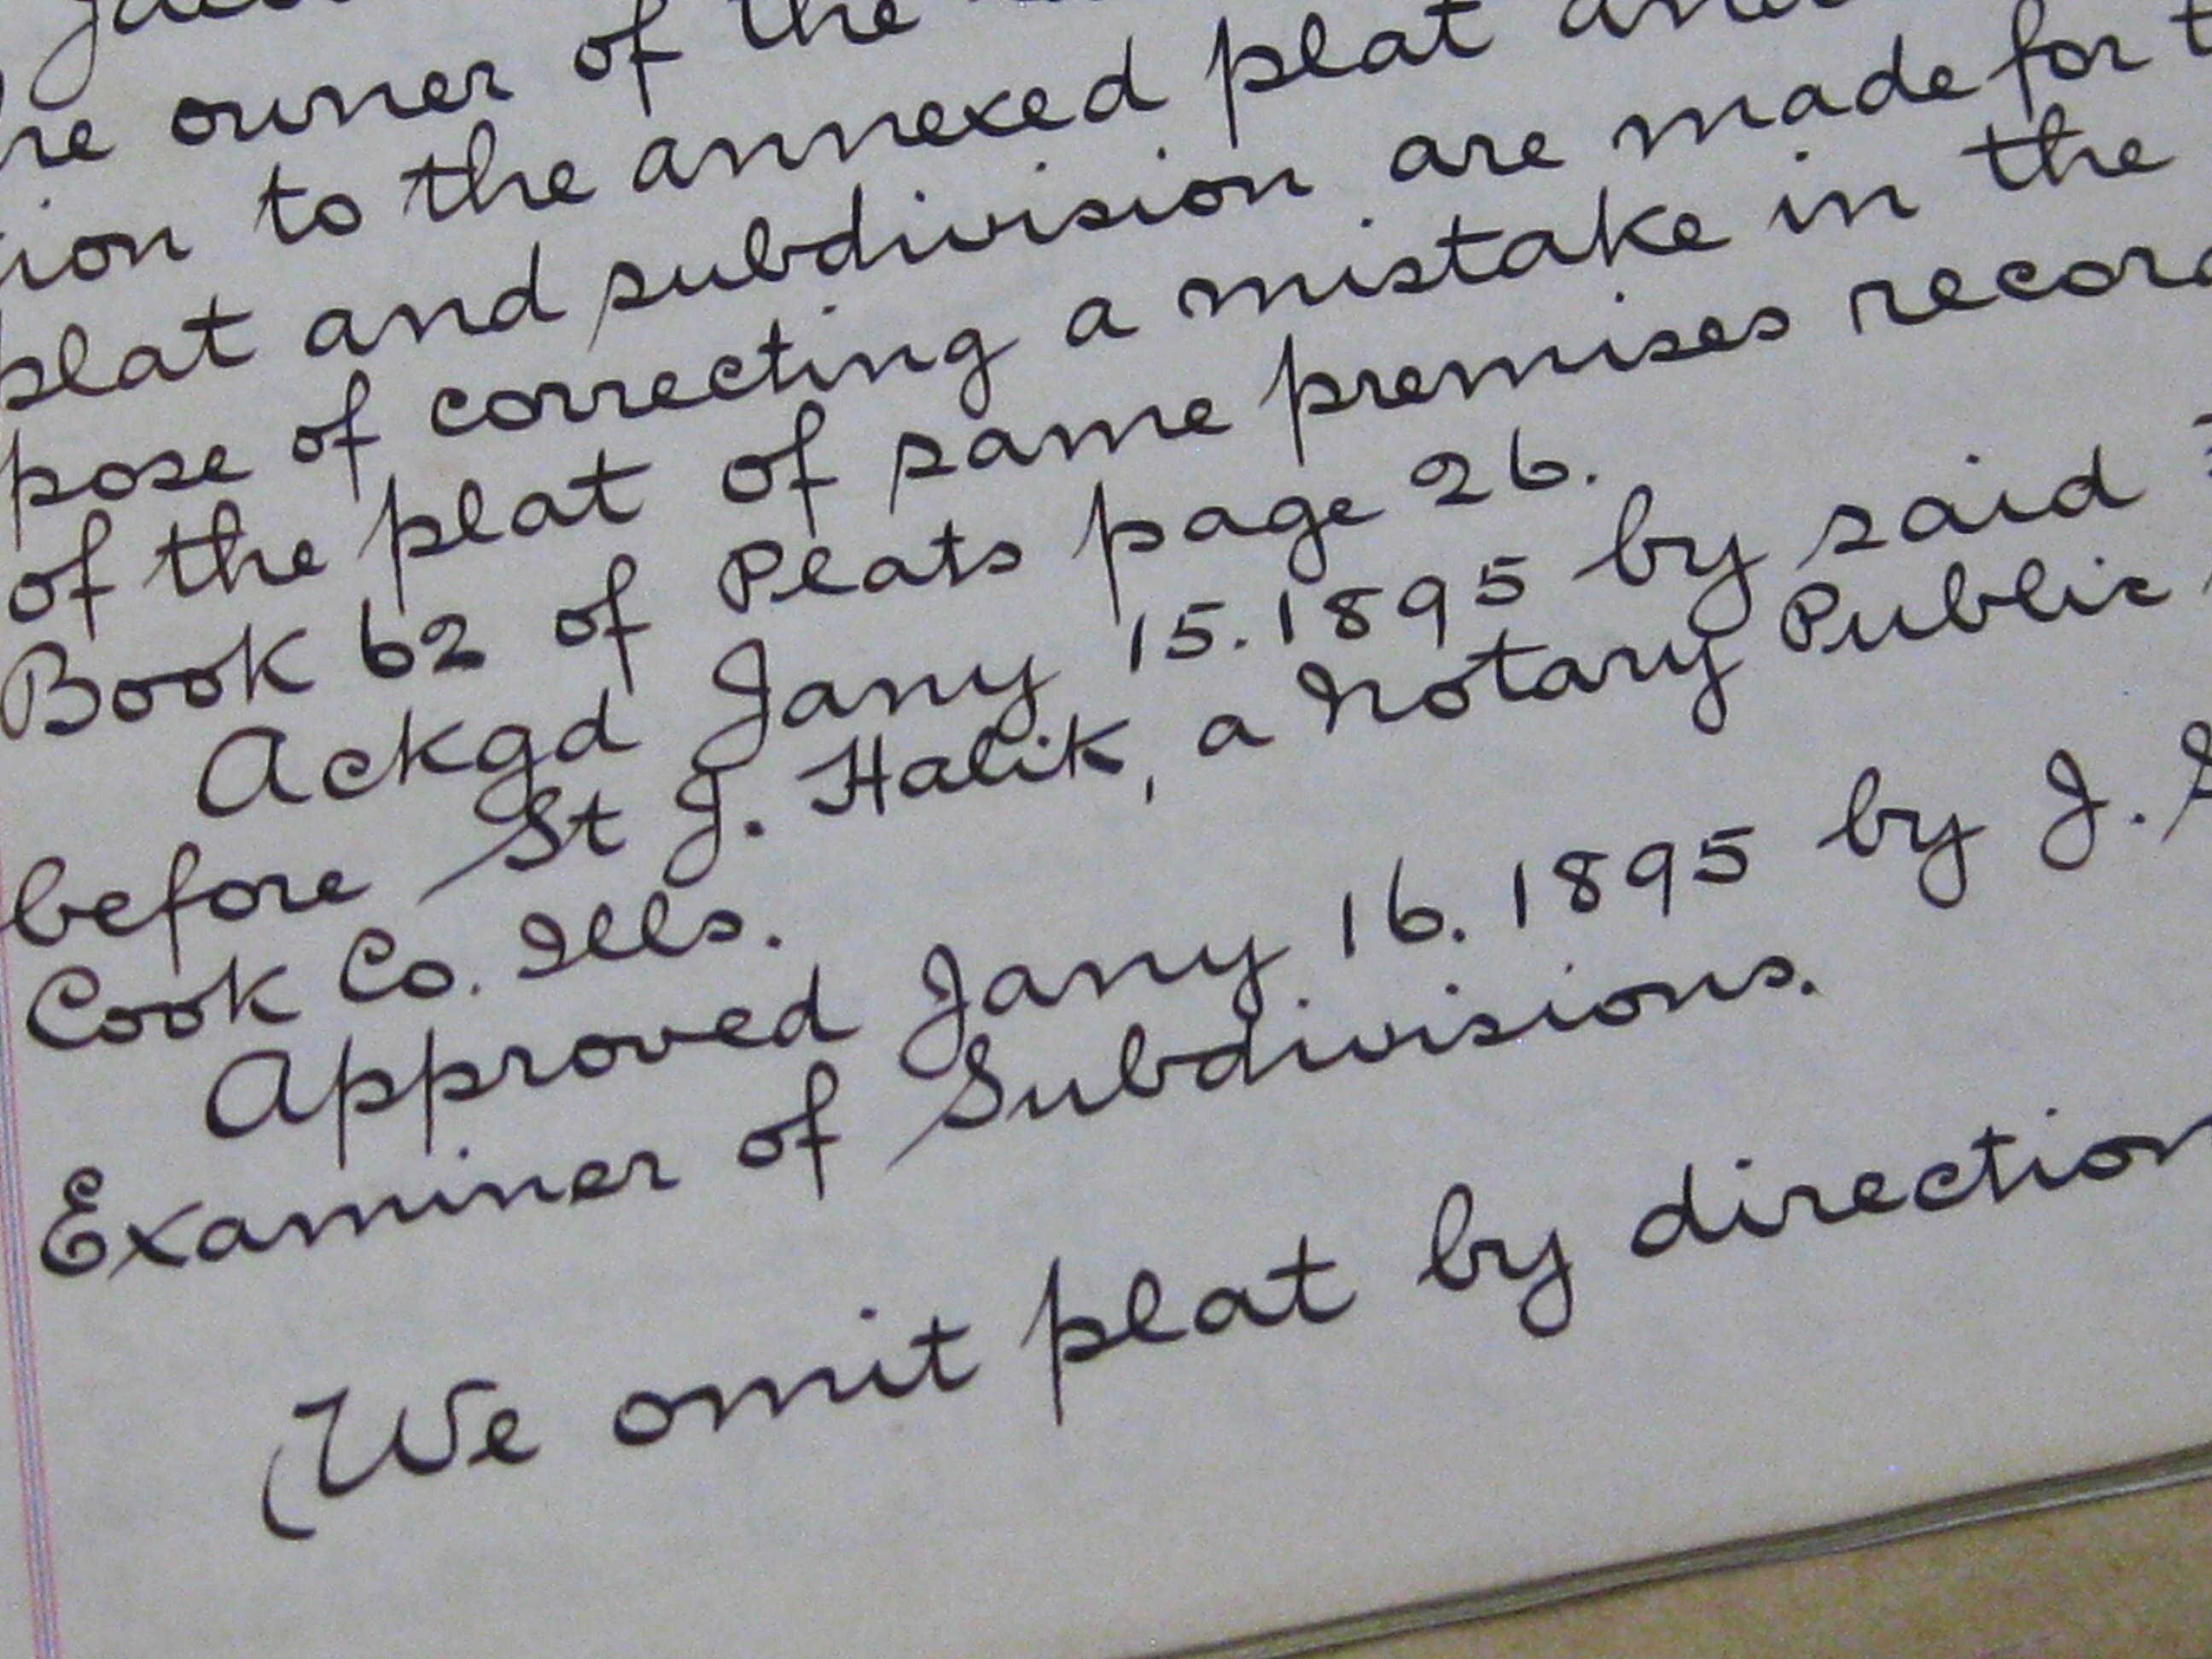 owner of the
to the annexed plat
plat and subdivision are made for
of correcting a mistake in the
of the plat of same premises
Book 62 of Plats page 26.
Ackgd Jany 15. 1895 by said
before St J. Halik, a Notary Public
Cook Co. Ills.
Approved Jany 16. 1895 by J.
Examiner of Subdivisions.
(We omit plat by direction